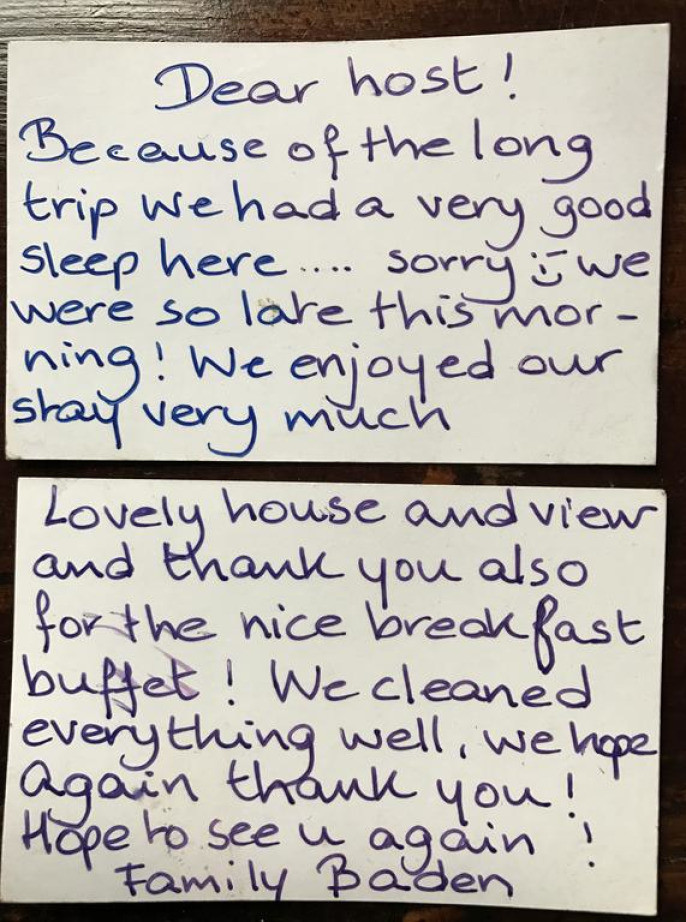 Dear host!
Because of the long
trip we had a very good
sleep here.... sorry :-) we
were so late this mor-
ning! We enjoyed our
stay very much
Lovely house and view
and thank you also
for the nice breakfast
buffet! We cleaned
everything well, we hope
Again thank you!
Hope to see u again!
Family Baden